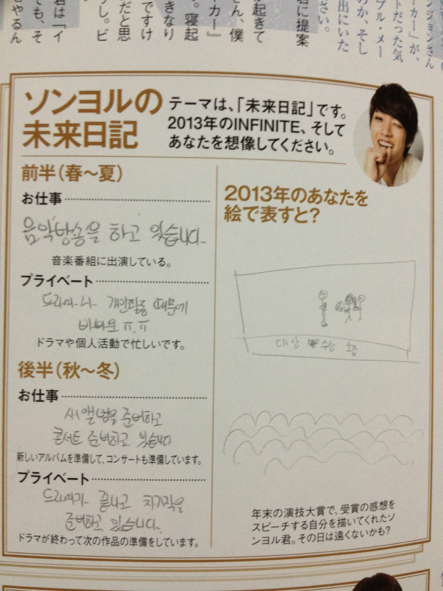 ソンヨルの
未来日記
テーマは、「未来日記」です。
2013年のINFINITE、そして
あなたを想像してください。
前半（春〜夏）
お仕事
음악방송을 하고 있습니다.
音楽番組に出演している。
プライベート
드라마나 개인활동 때문에
바빠요 ㅠ.ㅠ
ドラマや個人活動で忙しいです。
後半（秋〜冬）
お仕事
새 앨범을 준비하고
콘서트 준비하고 있습니다
新しいアルバムを準備して、コンサートも準備しています。
プライベート
드라마가 끝나고 차기작을
준비하고 있습니다.
ドラマが終わって次の作品の準備をしています。
2013年のあなたを
絵で表すと？
대상
年末の演技大賞で、受賞の感想を
スピーチする自分を描いてくれたソ
ンヨル君。その日は遠くないかも？